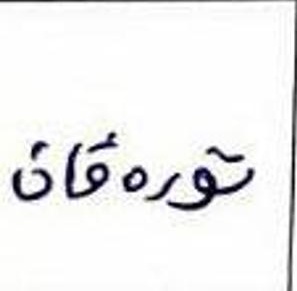 تورە قان